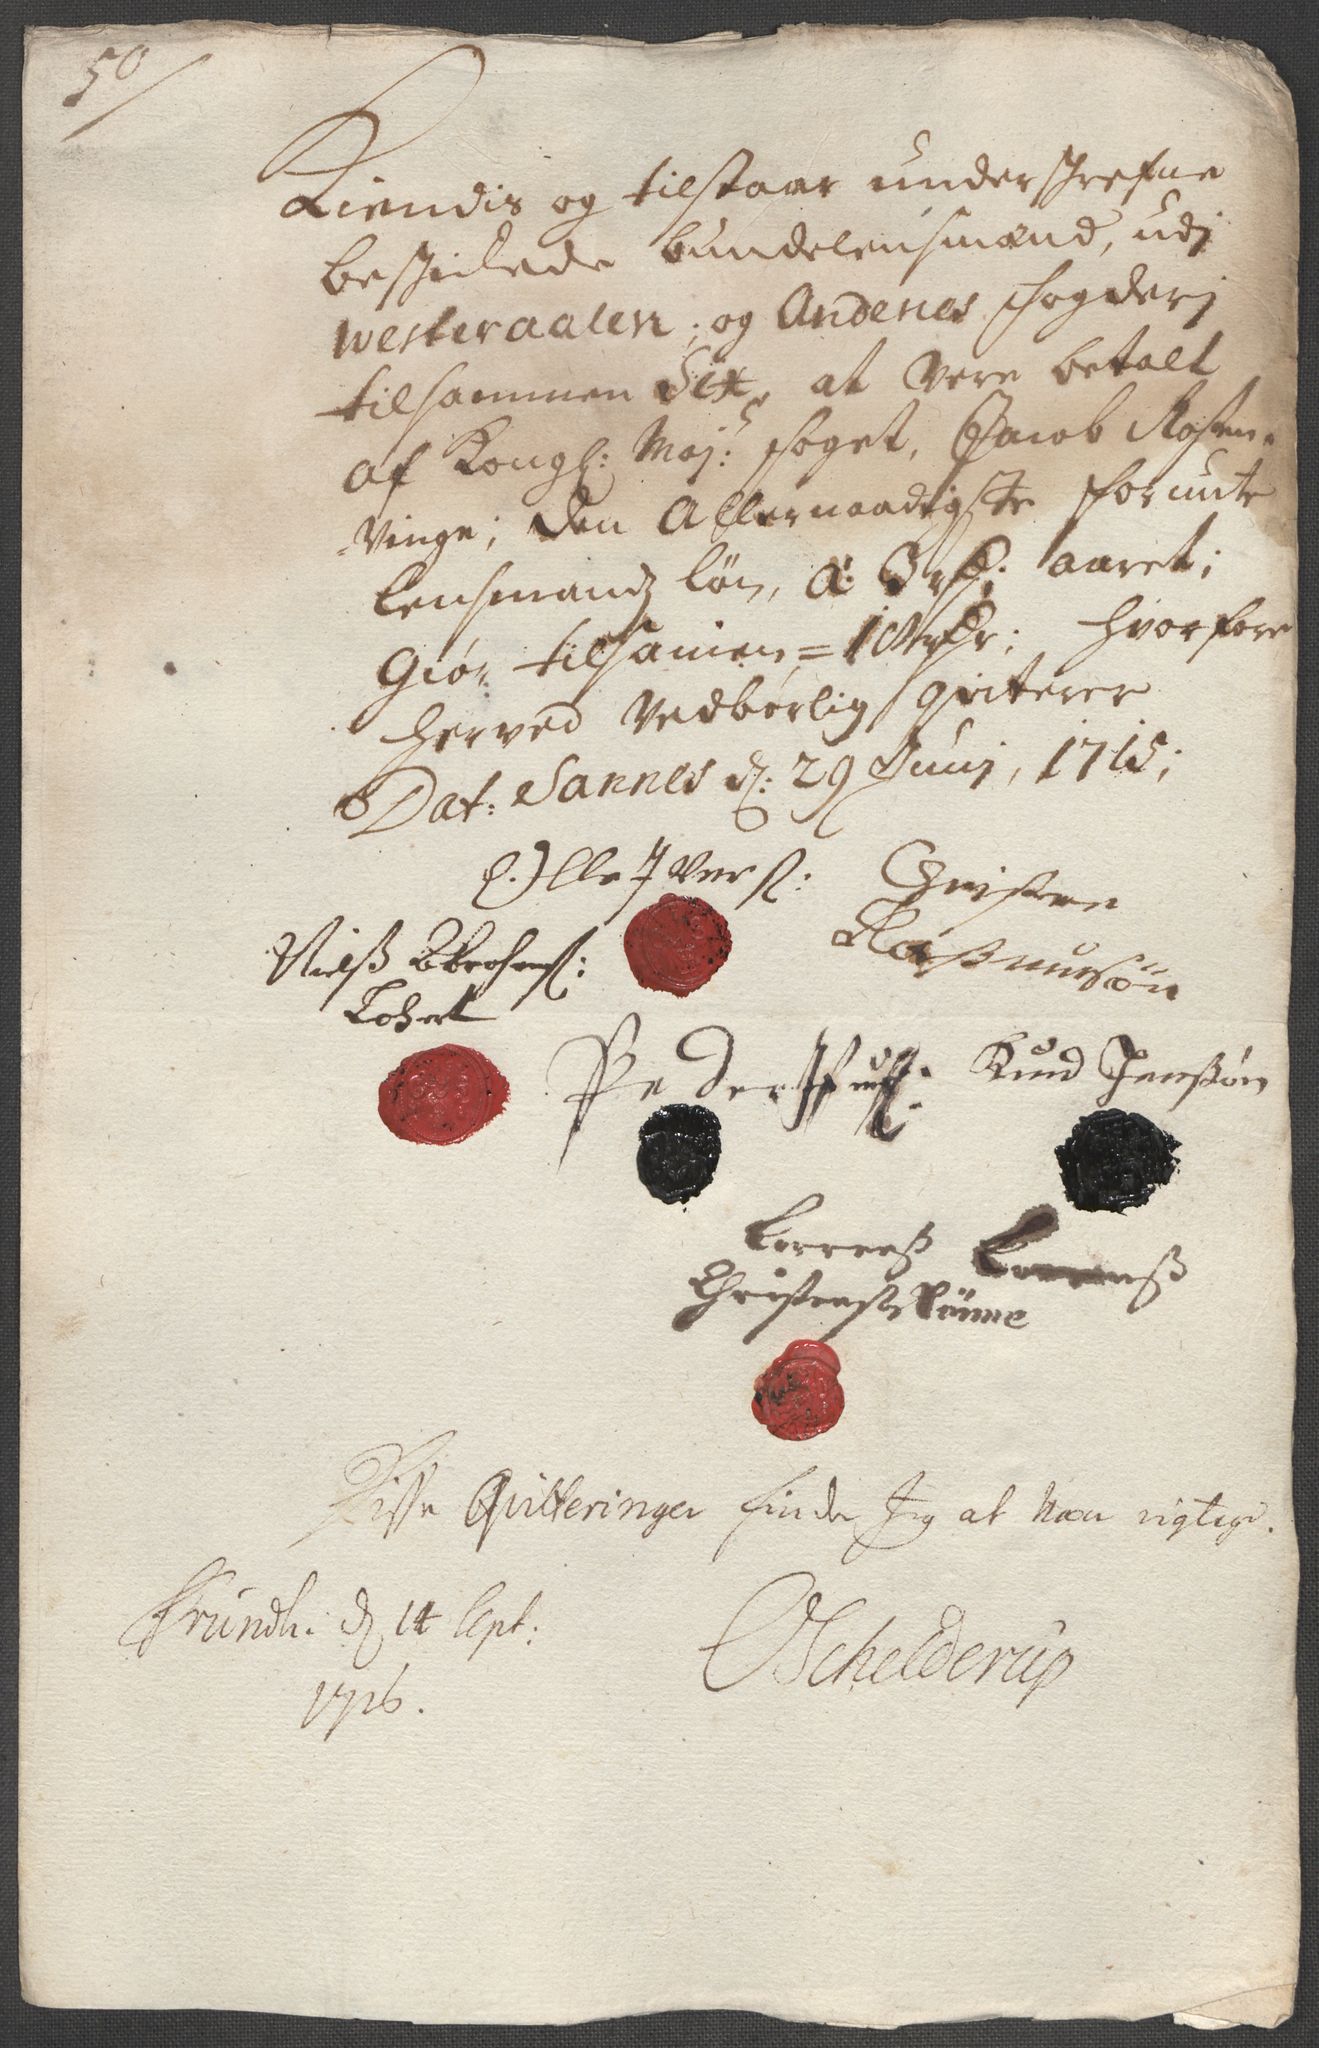 50
Kiendis og tilstaar underschrefne
beskichede bundelensmænd, udj
Westeraalen; og Andenes fogderj
tilsammen Sex, at vere betalt
af Kongl: Maj: foget, Jacob Rosen-
-vinge; den Allernaadigste forunte
lensmandz løn, á: 3 rdr: aaret;
Giør tilsamen = 18 rdr; hvorfore
herved vedbørlig qviterer
Dat: Sannes d: 29 Junj, 1715;
Olle Iverß: Christen
Raßmusøn
Nielß
Peder Knud Jenßøn
Lorenß Lorenß
Christenß
Disse Qvitteringer finder Jeg at vær rigtige.
Trundh. d 14 Sept:
1716.
OSchelderup